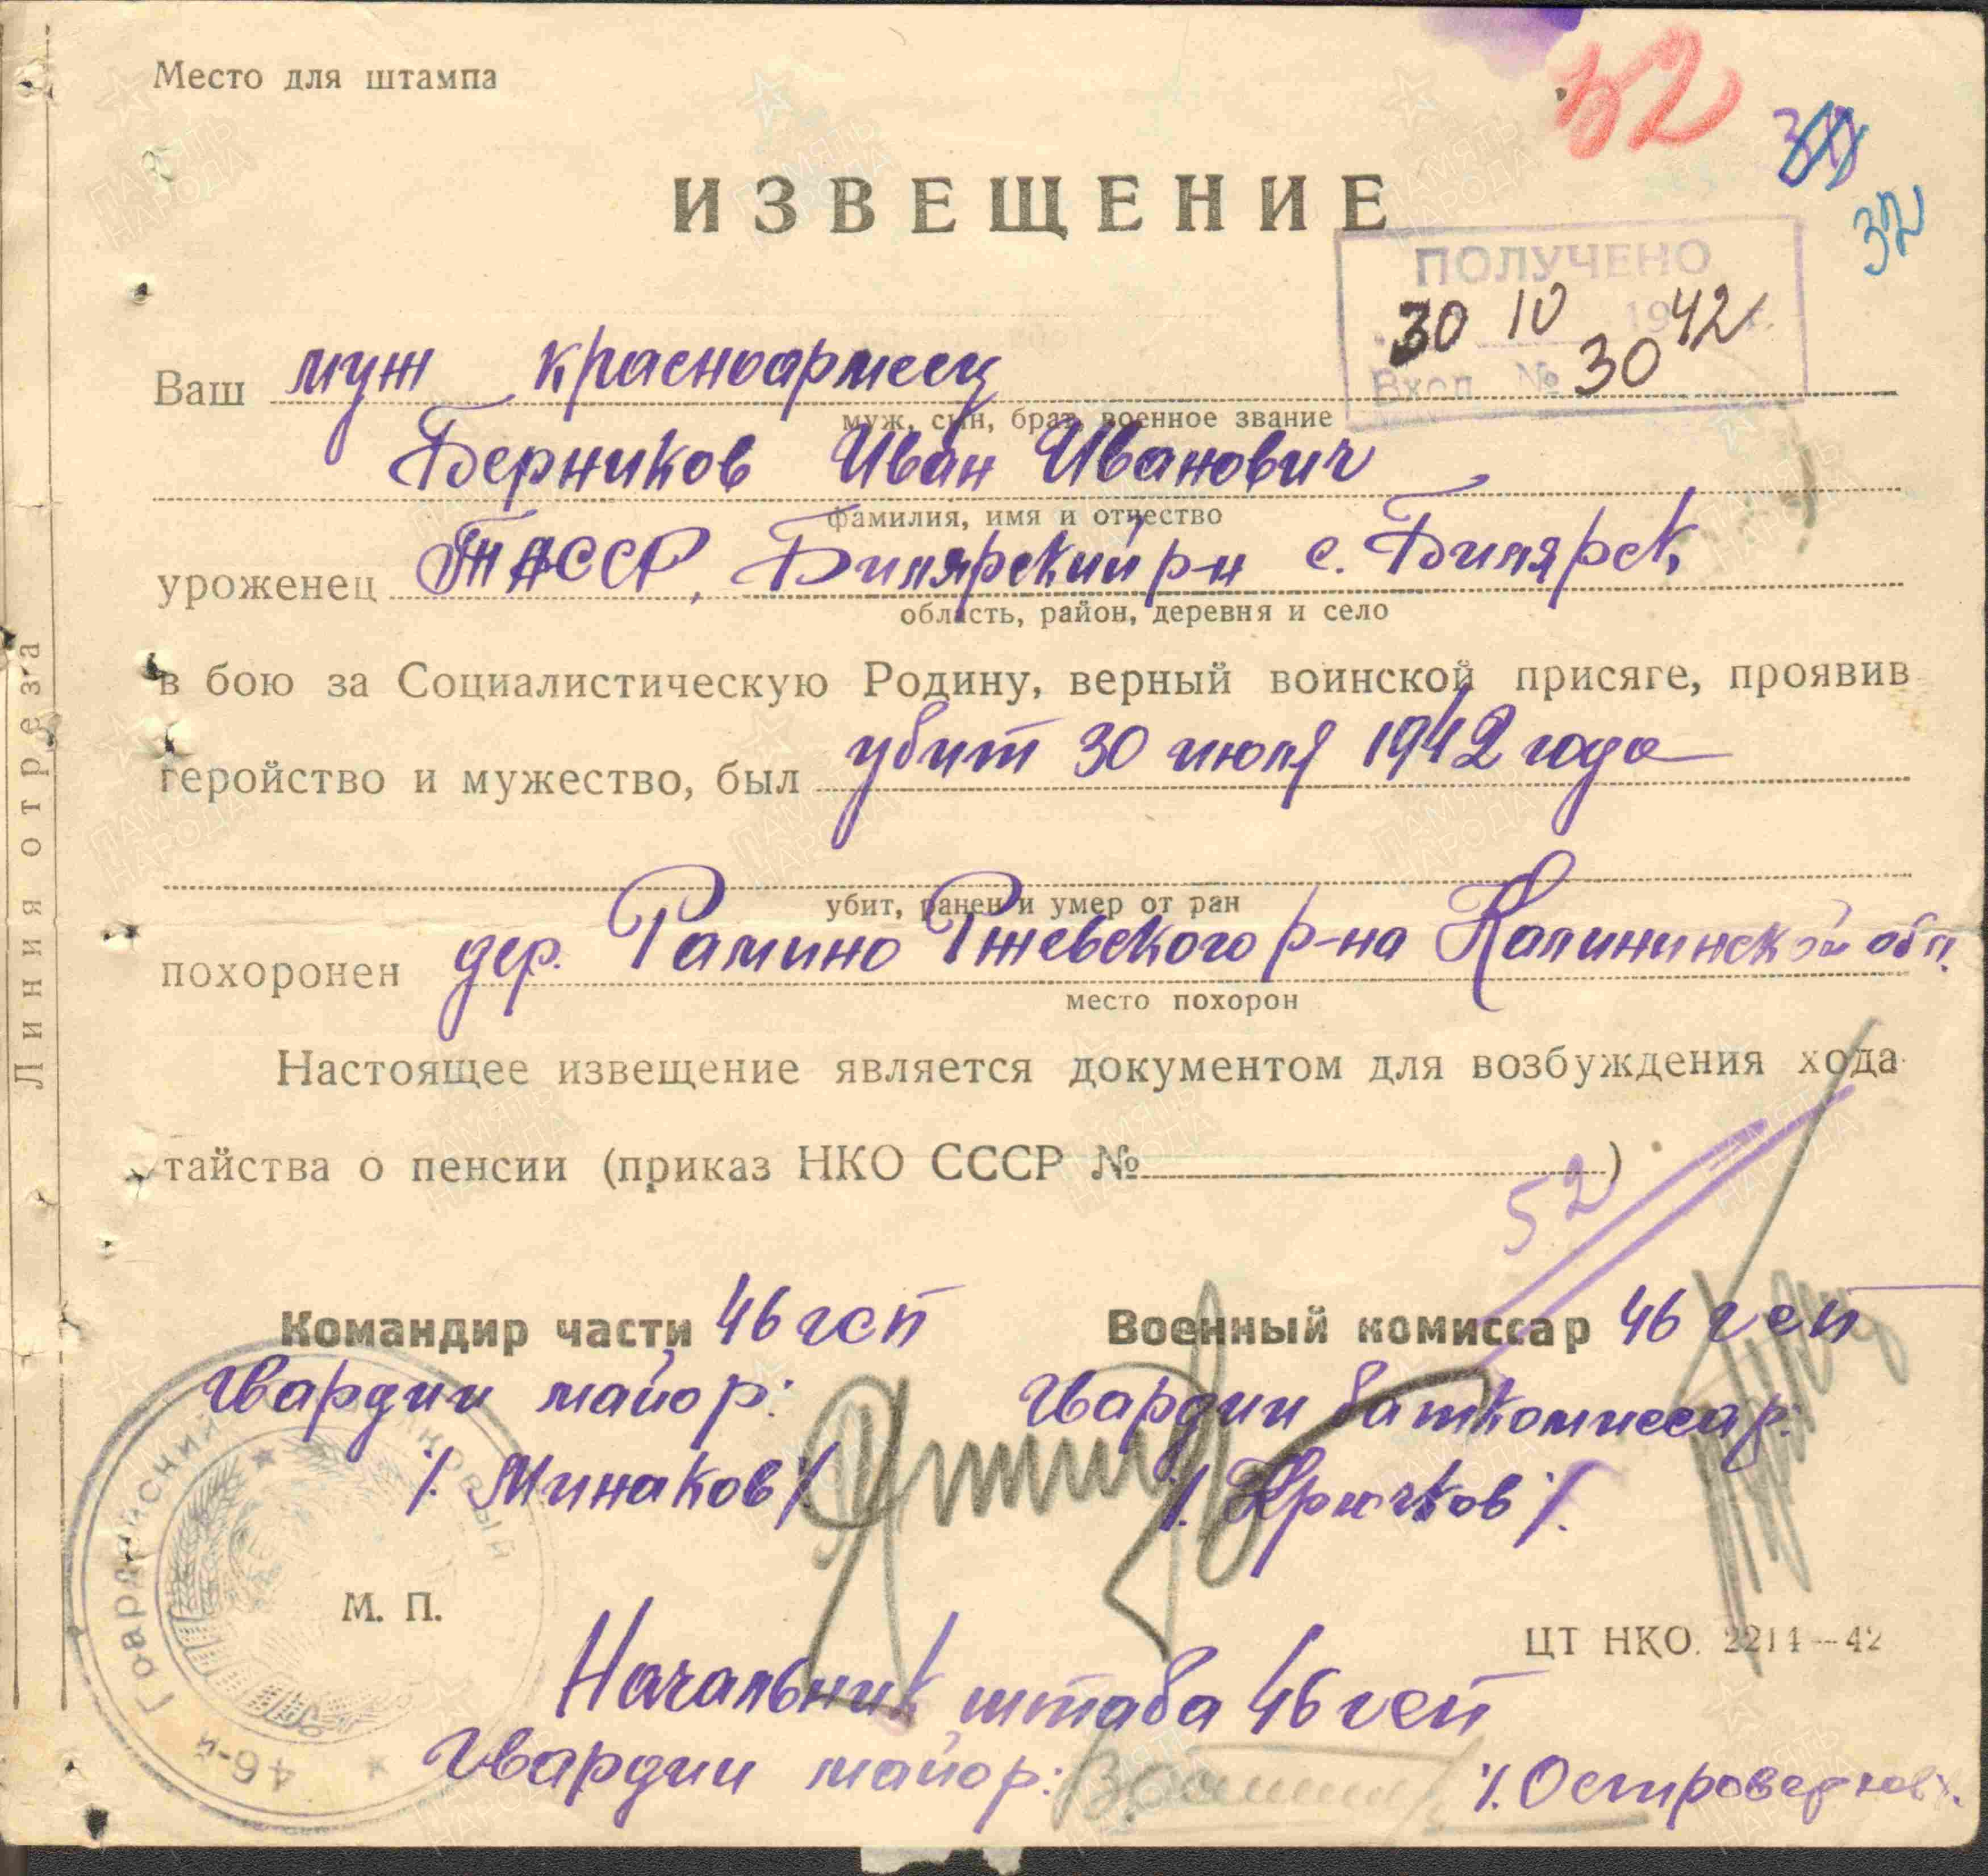 Место для штампа
52
32
ИЗВЕЩЕНИЕ
ПОЛУЧЕНО
30 10 1942 г.
Вход. № 30
Ваш муж красноармеец
муж, сын, брат, военное звание
Берников Иван Иванович
фамилия, имя и отчество
уроженец ТАССР, Билярский р-н с. Билярск
область, район, деревня и село
в бою за Социалистическую Родину, верный воинской присяге, проявив
геройство и мужество, был убит 30 июля 1942 года
убит, ранен и умер от ран
похоронен дер. Рамино Ржевского р-на Калининской обл.
место похорон
Настоящее извещение является документом для возбуждения хода-
тайства о пенсии (приказ НКО СССР № )
52
Командир части 46 гсп Военный комиссар 46 гсп
Гвардии майор: Гвардии баткомиссар:
/. Минаков / /. Крючков /.
М. П.
ЦТ НКО. 2214—42
Начальник штаба 46 гсп
Гвардии майор: /. Островерхов /.
46-й Гвардейский
Линия отреза
ПАМЯТЬ НАРОДА